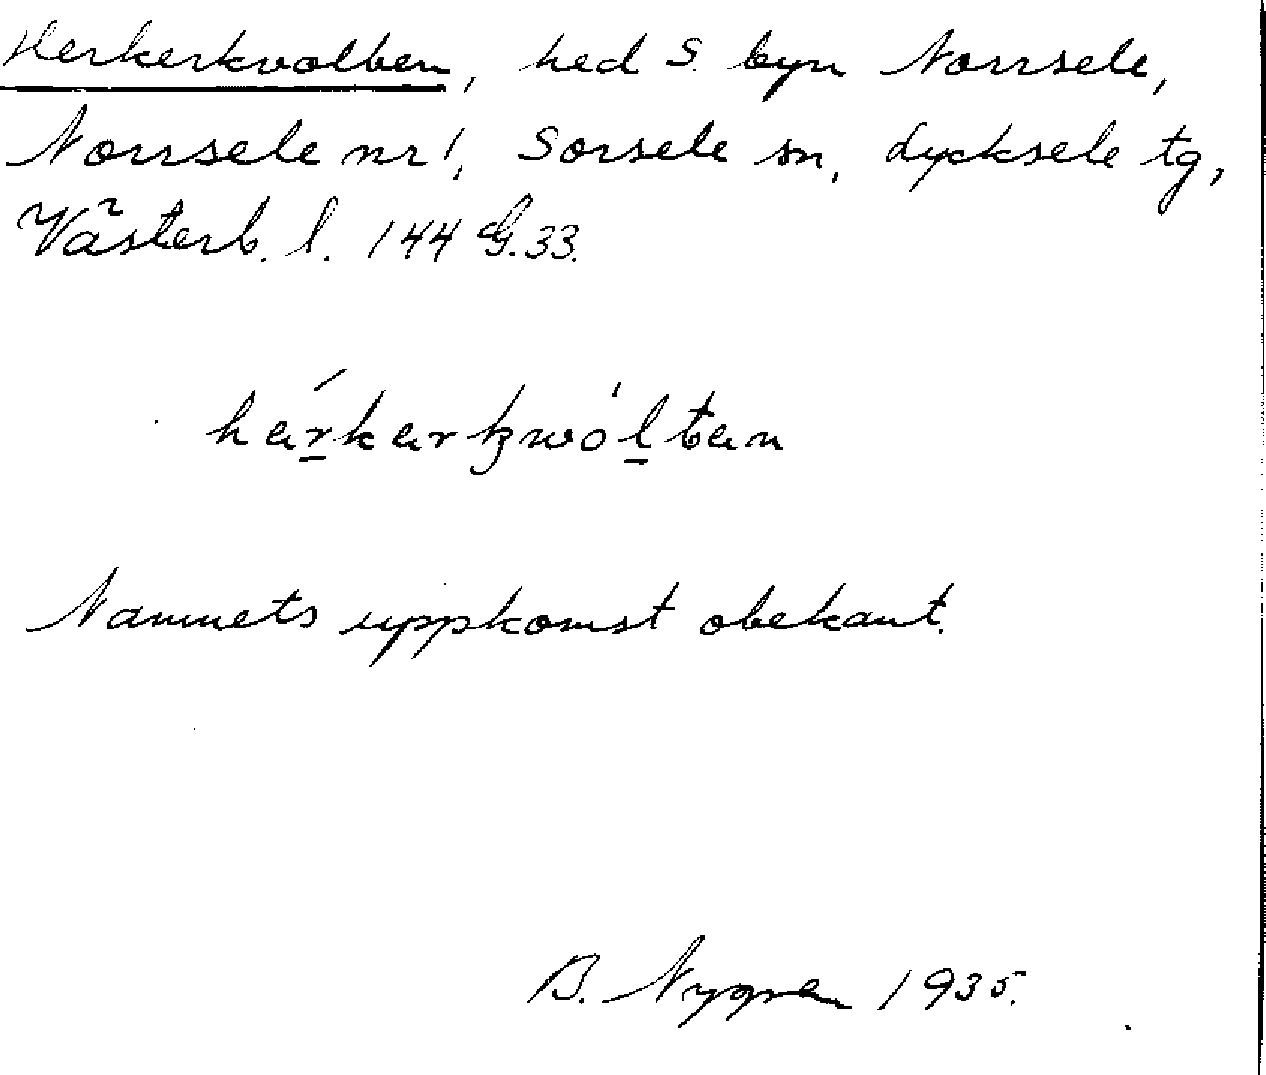 Herkerkvolben, hed S. byn Norrsele,
Norrsele nr 1, Sorsele sn, Lycksele tg,
Västerb. l. 144 G. 33.
Namnets uppkomst obekant.
B. Nygren 1935.